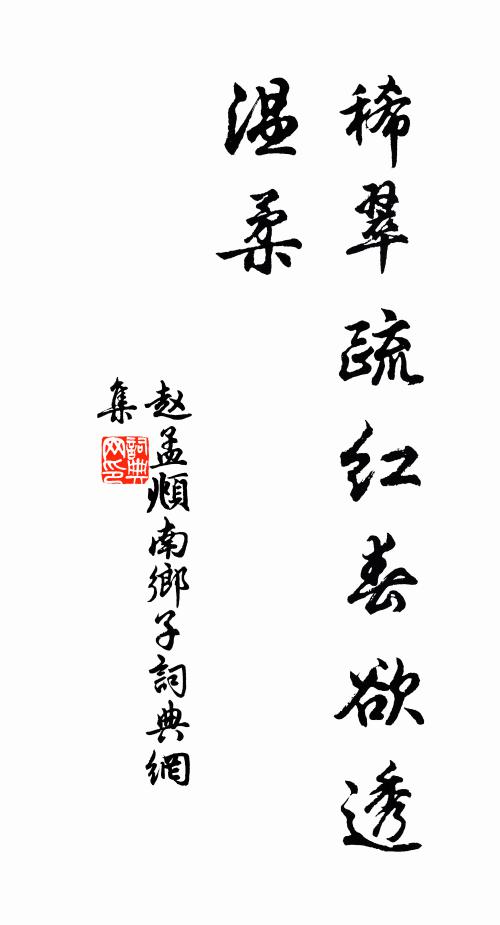 稀翠疏红春欲透
温柔
赵孟頫南鄉子詞典網
集
詞典
网印